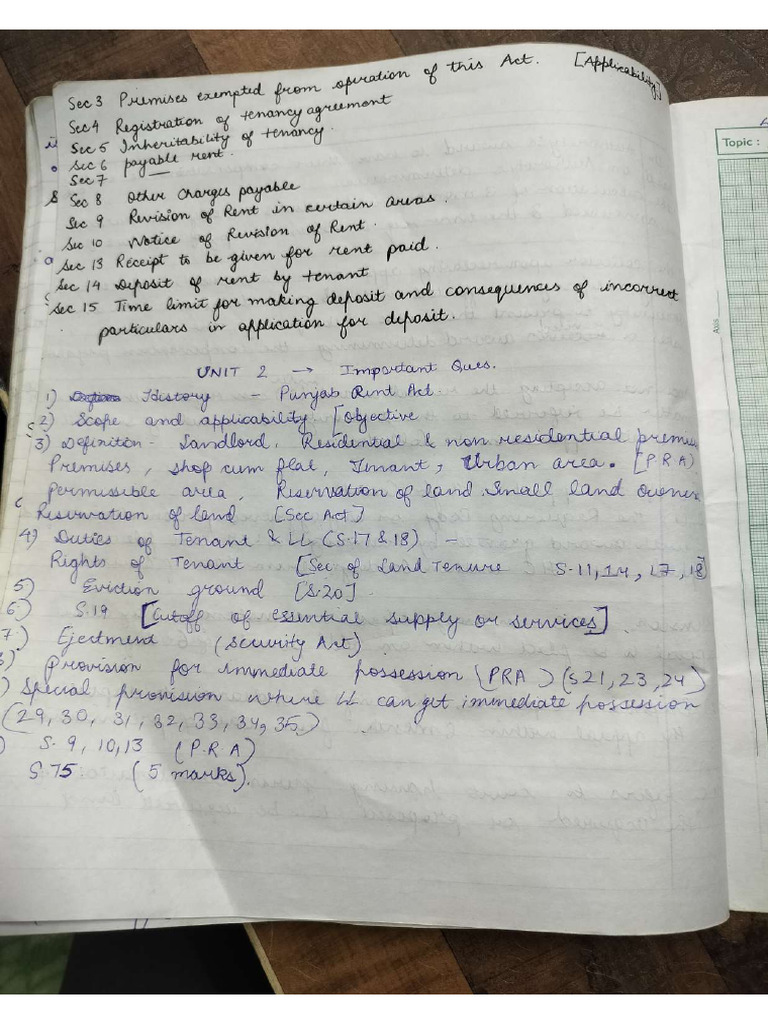 Sec 3 Premises exempted from operation of this Act. [Applicability]
Sec 4 Registration of tenancy agreement
Sec 5 Inheritability of tenancy.
Sec 6 payable rent.
Sec 7
Sec 8 Other charges payable
Sec 9 Revision of Rent in certain areas.
Sec 10 Notice of Revision of Rent.
Sec 13 Receipt to be given for rent paid.
Sec 14 Deposit of rent by tenant
Sec 15 Time limit for making deposit and consequences of incorrect
particulars in application for deposit.
Topic :
Axis
UNIT 2 → Important Ques.
1) History - Punjab Rent Act.
2) Scope and applicability [Objective
3) Definiton - Landlord, Residential & non residential premises
Premises, shop cum flat, Tenant, Urban area. [P.R.A)
Permissible area, Reservation of land, Small land owner
Reservation of land [Sec Act]
4) Duties of Tenant & LL (S.17 & 18) -
Rights of Tenant [Sec of Land Tenure S.11, 14, 17, 18]
5) Eviction ground [S.20].
6) S.19 [Cutoff of essential supply or services].
7.) Ejectment (Security Act)
) Provision for immediate possession (PRA) (S21, 23, 24)
) Special provision where LL can get immediate possession
(29, 30, 31, 32, 33, 34, 35.)
) S. 9, 10, 13 (P.R A)
S.75 (5 marks).